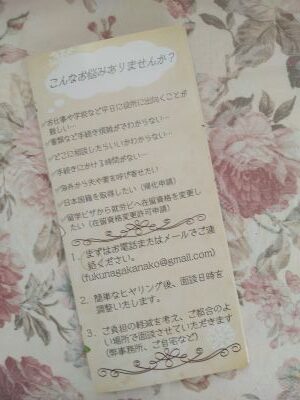 こんなお悩みありませんか？
✓お仕事や学校など平日に役所に出向くことが
難しい…
✓書類など手続き複雑がでわからない…
✓どこに相談したらいいかわからない…
✓手続きにかける時間がない…
✓海外から夫や妻を呼び寄せたい
✓日本国籍を取得したい（帰化申請）
✓留学ビザから就労ビへ在留資格を変更し
たい（在留資格変更許可申請）
1．まずはお電話またはメールでご連
絡ください。
(fukunagakanako@gmail.com)
2．簡単なヒヤリング後、面談日時を
調整いたします。
3．ご負担の軽減を考え、ご都合のよ
い場所で面談させていただきます
（弊事務所、ご自宅など）